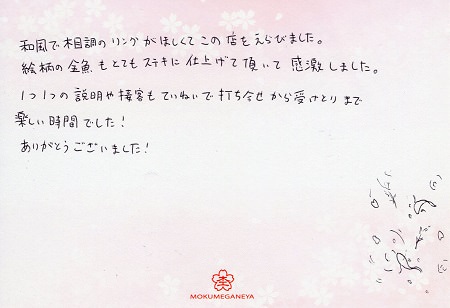 和風で木目調のリングがほしくてこの店をえらびました。
絵柄の金魚もとてもステキに仕上げて頂いて感激しました。
1つ1つの説明や接客もていねいで打ち合せから受けとりまで
楽しい時間でした!
ありがとうございました!
MOKUMEGANEYA